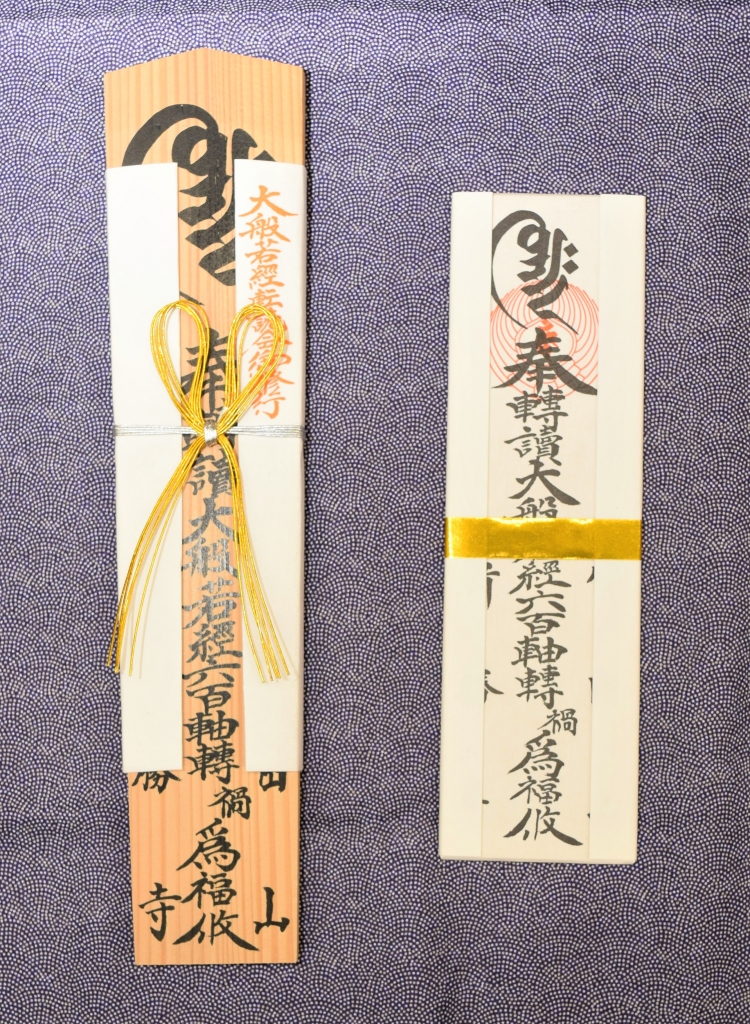 大般若經転読会御修行
山
奉轉讀大般若經六百軸轉禍爲福攸
勝寺
奉轉讀大般經六百軸轉禍爲福攸